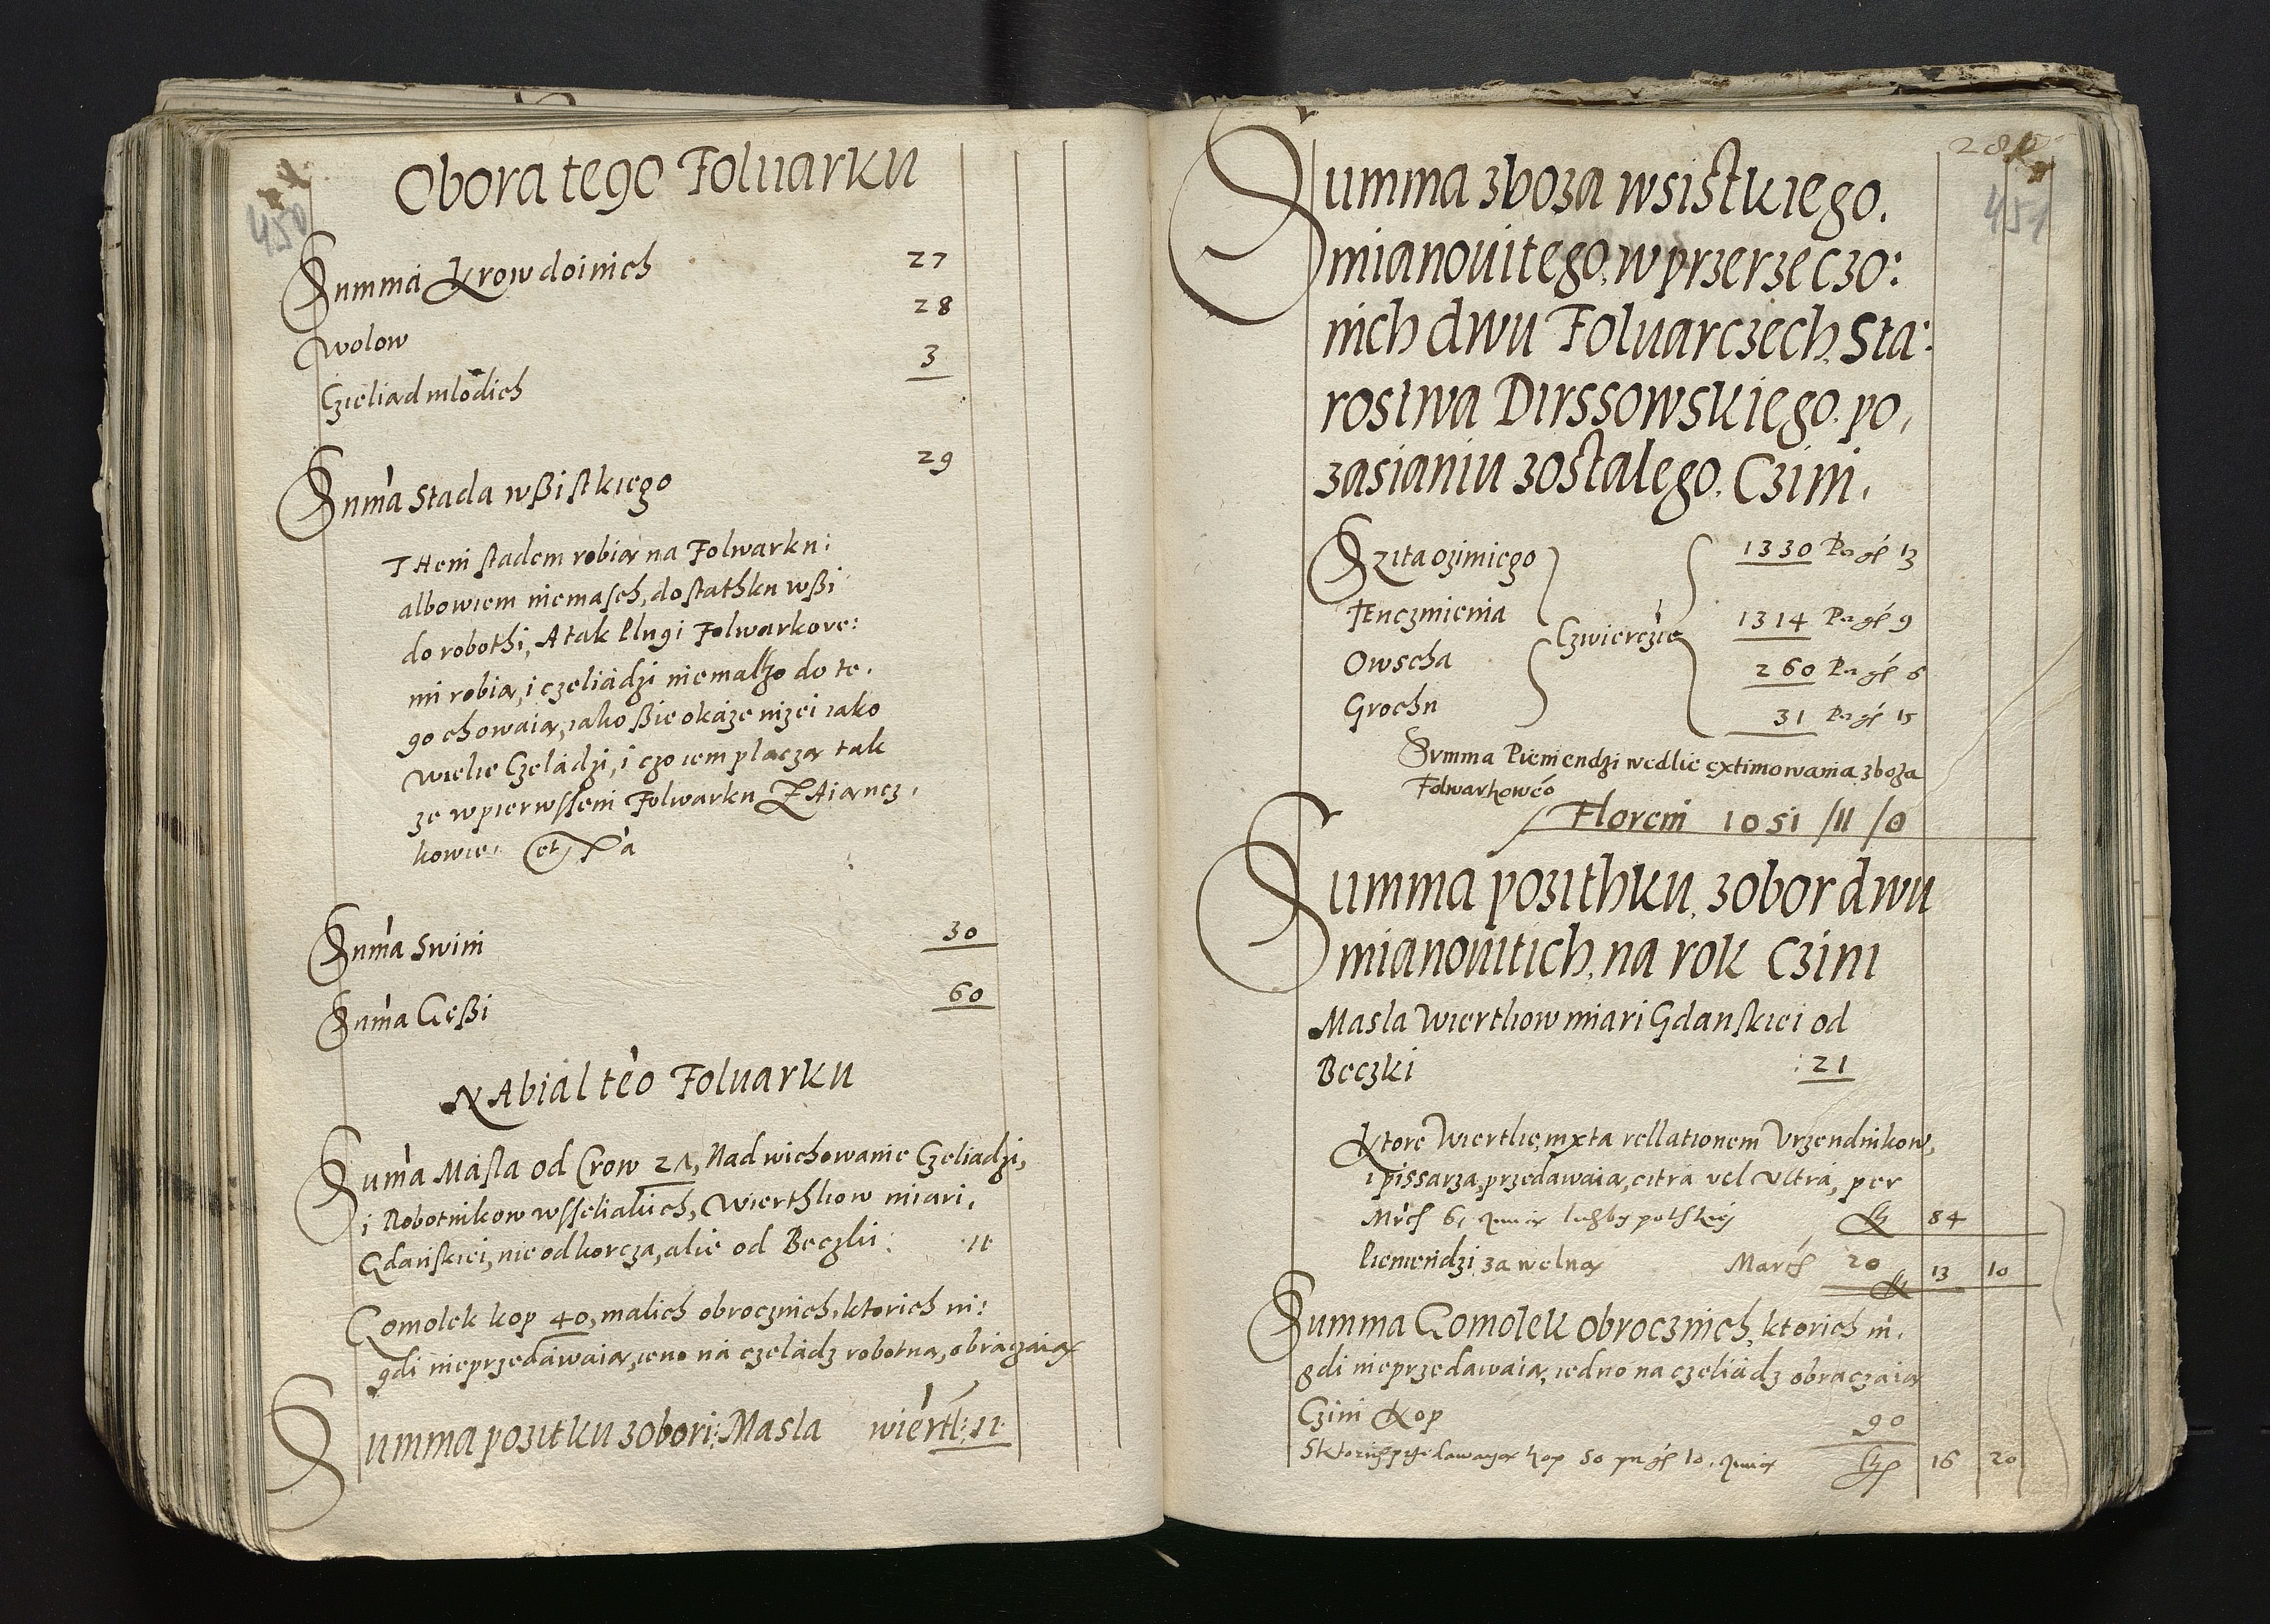 450
Obora tego Foluarku
Summa Krow doinich 27
Wolow 28
Czieliad mlodich 3
Suma Stada wßistkiego 29
THem stadem robią na Folwarku:
albowiem niemasch, dostathku wßi
do robothi, A tak Plugi Folwarkove:
mi robią, i czeliadzi niemalzo do te.
go chowaią, iako ßie okaze nizei iako
wielie Czeladzi, i czo iem placzą tak
ze wpierwssem Folwarku
kowie. et
Suma Swini 30
Suma Geßi 60
NAbial teo Foluarku
Suma Masla od Crow 21, Nad wichowanie Czeliadzi,
i Robotnikow wsseliakich, Wierthliow miari.
Gdanskiei, nie od korcza, alie od Beczki: 11
Gomolek kop 40, malich obrocznich, ktorich ni:
gdi nieprzedawaią, ieno na czeladz robotną, obraczaią
Summa pozitku zobori: Masla wiertl: 11
451
Summa zboza wsistkiego.
mianouitego, w przerzeczo:
nich dwu Foluarczech, Sta:
rostwa Dirssowskiego. po,
zasianiu zostalego. Czini.
Szita ozimiego 1330 13
IEnczmienia 1314 9
Czwierczie
Owscha 260 6
Grochu 31 15
Summa Pieniendzi wedlie extimowania zboza
Folwarkoweo
Floreni 1051 /11 /0
Summa pozithku, zobor dwu
mianouitich, na rok Czini
Masla Wiertliow miari Gdanskiei od
Beczki :21
Ktore Wiertlie, iuxta rellationem Vrzendnikow,
i pissarza, przedawaia, citra vel vltra, per
Mrc 6, liczby polskiej 84
Pieniendzi za welną Marc 20 13 10
Summa Gomolek obrocznich, ktorich ni.
gdi nieprzedawaią, iedno na czeliadz obraczaią
Czini Kop 90
Sktorich przedawaya kop 50 10 16 20